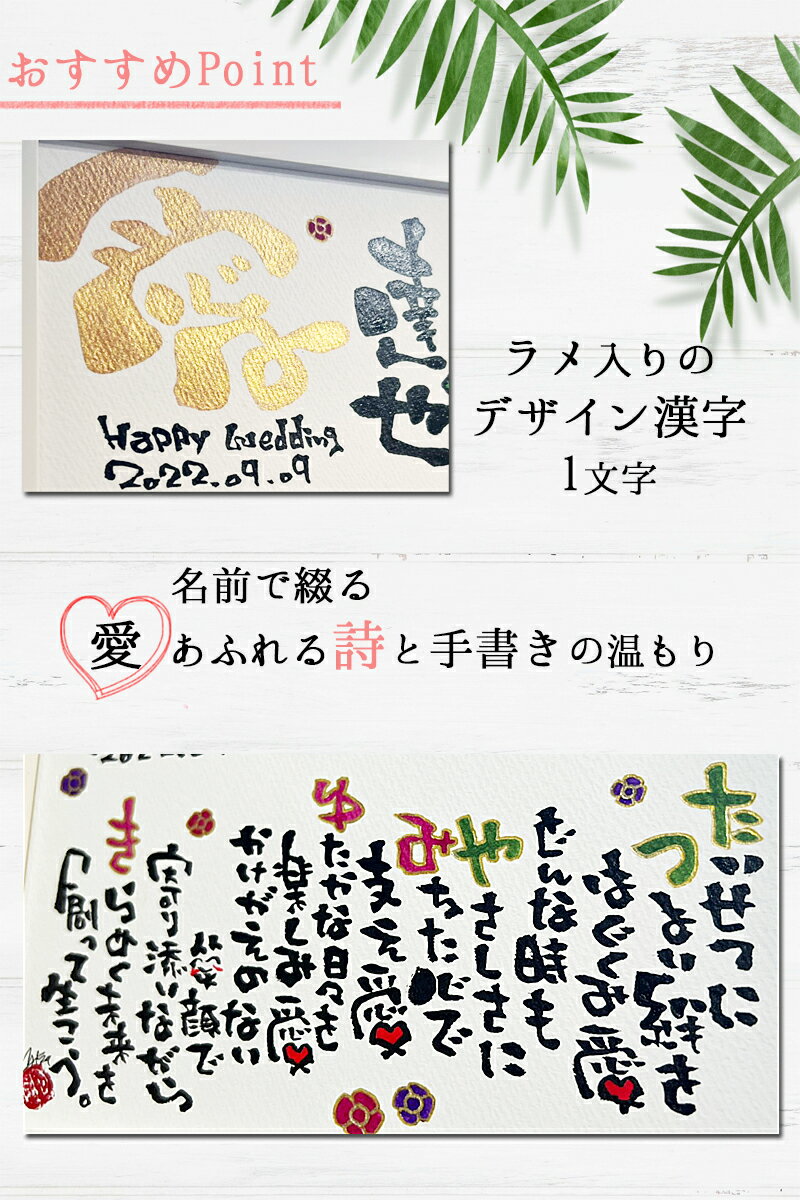 おすすめPoint
愛
幸せ
Happy Wedding
2022.09.09
ラメ入りの
デザイン漢字
1文字
名前で綴る
愛あふれる詩と手書きの温もり
たいせつに
つよい絆を
はぐくみ愛
どんな時も
やさしさに
みちた心で
支え愛
ゆたかな日々を
楽しみ愛
かけがえのない
笑顔で
寄り添いながら
きらめく未来を
創って生こう。